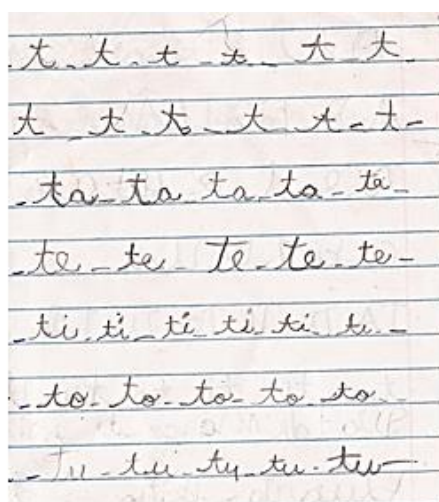 t t t t t t
t t t t t t
ta ta ta to te
te te Te te te
ti ti ti ti ti ti
to to to to to
Tu tu ty tu tu